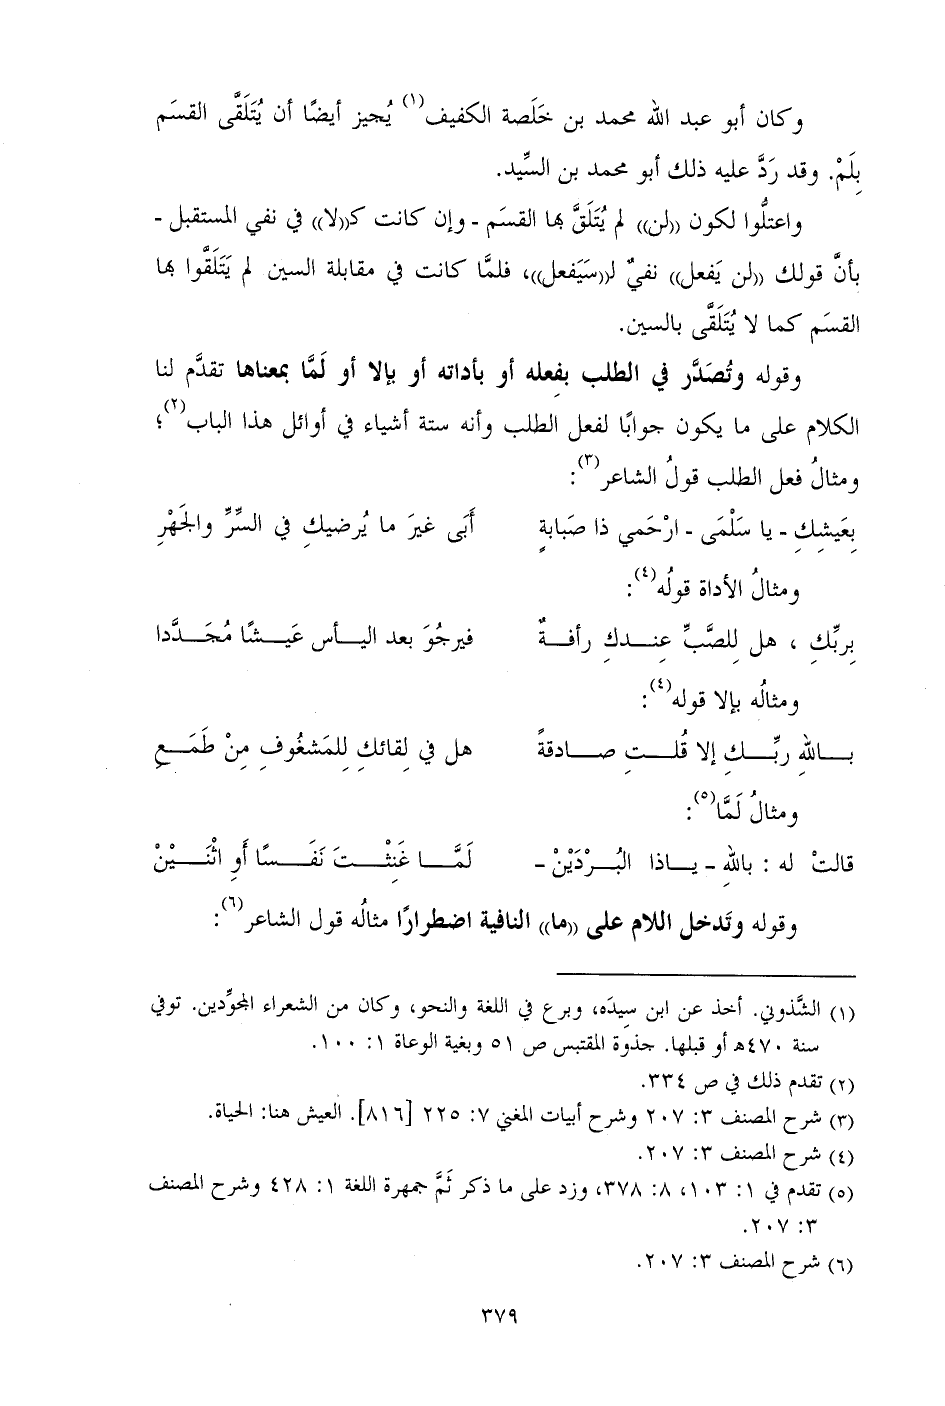 وكان أبو عبد الله محمد بن خَلَصة الكفيف(١) يُجيز أيضًا أن يُتَلَقَّى القسَم
بِلَمْ. وقد رَدَّ عليه ذلك أبو محمد بن السِّيد.
واعتلُّوا لكون ((لن)) لم يُتَلَقَّ بها القسَم - وإن كانت كـ((لا)) في نفي المستقبل -
بأنَّ قولك ((لن يَفعل)) نفيٌ لـ((سَيَفعل))، فلمَّا كانت في مقابلة السين لم يَتَلَقَّوا بها
القسَم كما لا يُتَلَقَّى بالسين.
وقوله وتُصَدَّر في الطلب بِفعله أو بأداته أو بإلا أو لَمَّا بمعناها تقدَّم لنا
الكلام على ما يكون جوابًا لفعل الطلب وأنه ستة أشياء في أوائل هذا الباب(٢)؛
ومثالُ فعل الطلب قولُ الشاعر(٣):
بِعَيشِكِ - يا سَلْمَى - ارْحَمي ذا صَبابةٍ أَبَى غيرَ ما يُرضيكِ في السِّرِّ والجَهْرِ
ومثالُ الأداة قولُه(٤):
بِربِّكِ ، هل لِلصَّبِّ عِندكِ رأفةٌ فيرجُوَ بعد اليأس عَيشًا مُجَدَّدا
ومثالُه بإلا قوله(٤):
بـاللهِ ربِّـكِ إلا قُلـتِ صـادقةً هل في لِقائكِ لِلمَشغُوفِ مِنْ طَمَعِ
ومثالُ لَمَّا(٥):
قالتْ له : بالله - يـاذا البُرْدَيْنْ - لَمَّـا غَنِثْـتَ نَفَسًا أو اثْنَـيْنْ
وقوله وتَدخل اللام على ((ما)) النافية اضطرارًا مثالُه قول الشاعر(٦):
(١) الشَّذوني. أخذ عن ابن سِيدَه، وبرع في اللغة والنحو، وكان من الشعراء المجوِّدين. توفي
سنة ٤٧٠هـ أو قبلها. جذوة المقتبس ص ٥١ وبغية الوعاة ١: ١٠٠.
(٢) تقدم ذلك في ص ٣٣٤.
(٣) شرح المصنف ٣: ٢٠٧ وشرح أبيات المغني ٧: ٢٢٥ [٨١٦]. العيش هنا: الحياة.
(٤) شرح المصنف ٣: ٢٠٧.
(٥) تقدم في ١: ١٠٣، ٨: ٣٧٨، وزد على ما ذكر ثَمَّ جمهرة اللغة ١: ٤٢٨ وشرح المصنف
٣: ٢٠٧.
(٦) شرح المصنف ٣: ٢٠٧.
٣٧٩